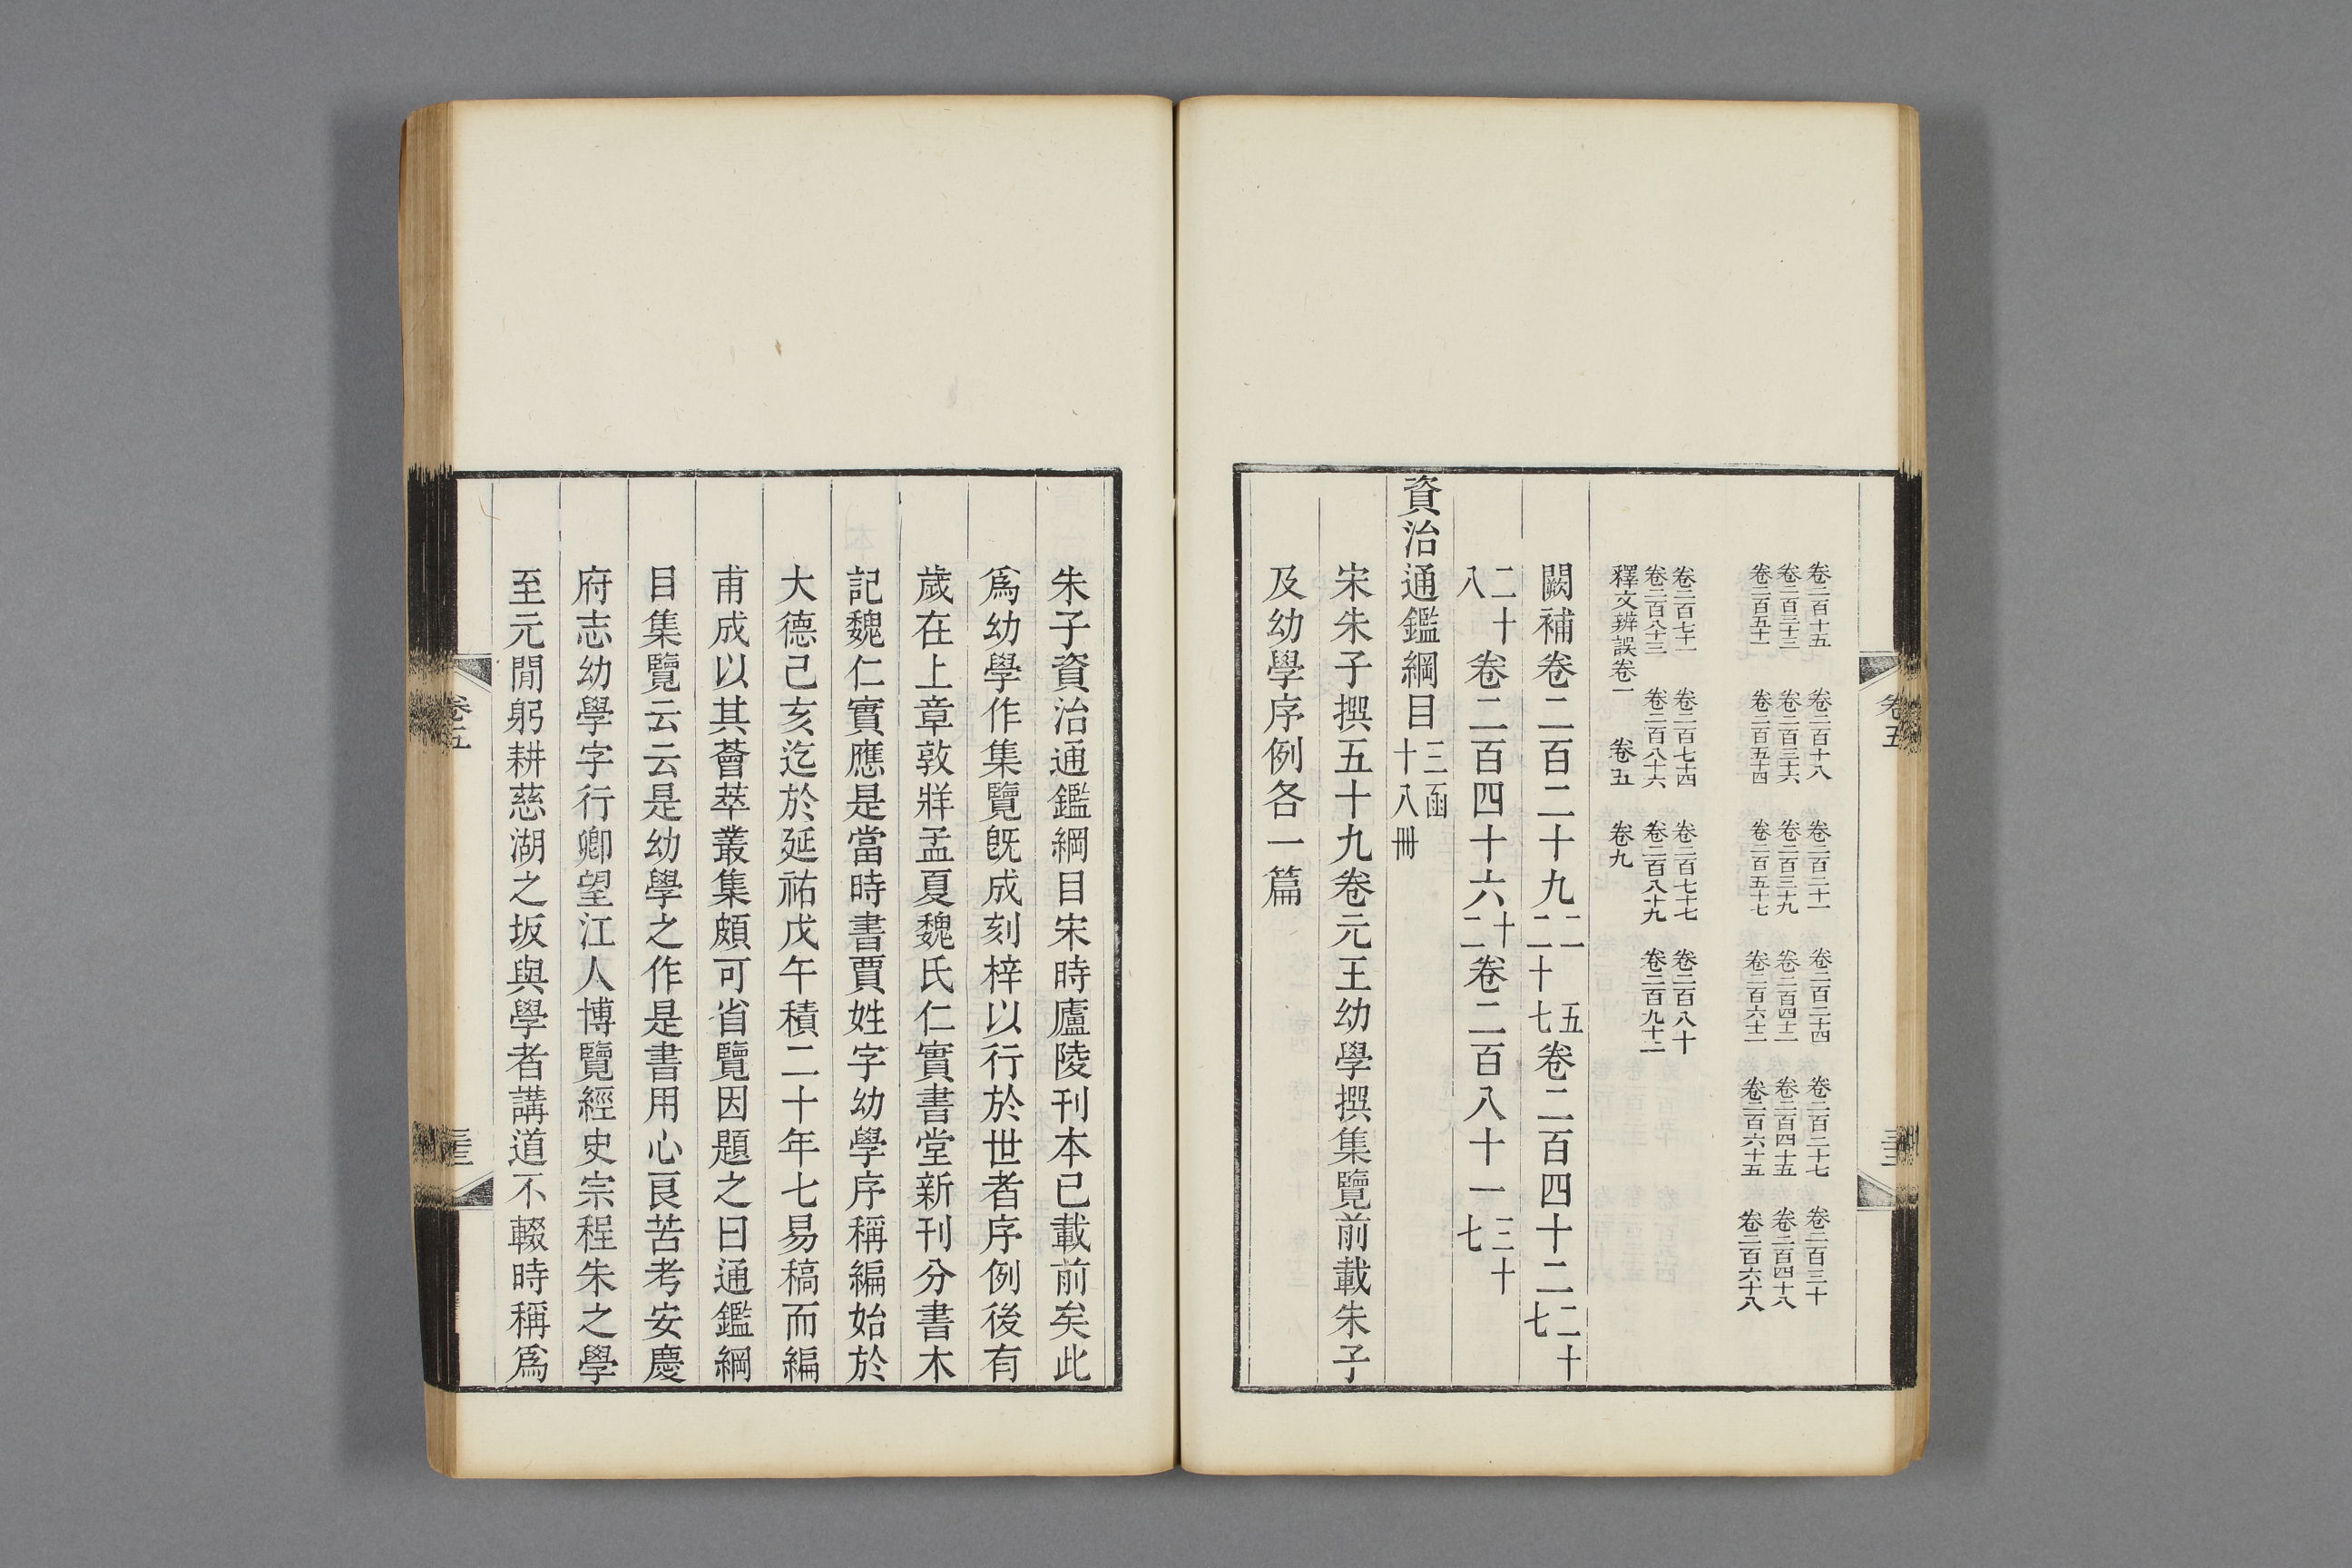 卷二百十五 卷二百十八 卷二百二十一 卷二百二十四 卷二百二十七 卷二百三十
卷二百三十三 卷二百三十六 卷二百三十九 卷二百四十二 卷二百四十五 卷二百四十八
卷二百五十一 卷二百五十四 卷二百五十七 卷二百六十二 卷二百六十五 卷二百六十八
卷二百七十一 卷二百七十四 卷二百七十七 卷二百八十
卷二百八十三 卷二百八十六 卷二百八十九 卷二百九十二
釋文辨誤卷一 卷五 卷九
闕補卷二百二十九二五二十七卷二百四十二二十七
二十八卷二百四十六十二卷二百八十一三十七
資治通鑑綱目三函十八冊
宋朱子撰五十九卷元王幼學撰集覽前載朱子
及幼學序例各一篇
朱子資治通鑑綱目宋時廬陵刊本已載前矣此
爲幼學作集覽既成刻梓以行於世者序例後有
歲在上章敦牂孟夏魏氏仁實書堂新刊分書木
記魏仁實應是當時書賈姓字幼學序稱編始於
大德己亥迄於延祐戊午積二十年七易稿而編
甫成以其薈萃叢集頗可省覽因題之曰通鑑綱
目集覽云云是幼學之作是書用心良苦考安慶
府志幼學字行卿望江人博覽經史宗程朱之學
至元閒躬耕慈湖之坂與學者講道不輟時稱爲
卷五